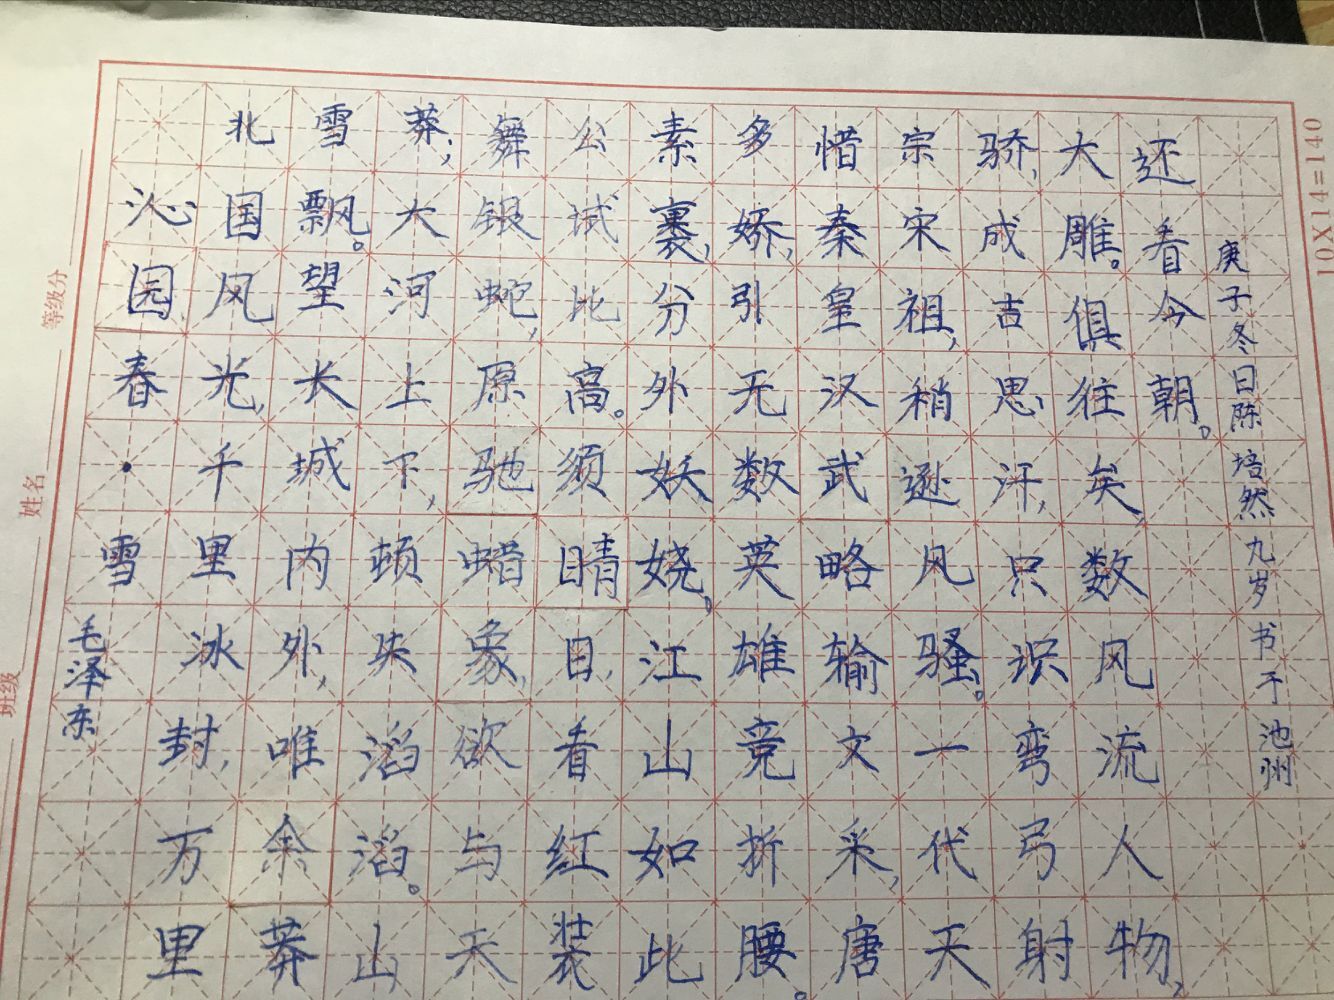 等级分
姓名
班级
沁园春·雪 毛泽东
北国风光,千里冰封,万里
雪飘。望长城内外,唯余莽
莽;大河上下,顿失滔滔。山
舞银蛇,原驰蜡象,欲与天
公试比高。须晴日,看红装
素裹,分外妖娆。江山如此
多娇,引无数英雄竞折腰。
惜秦皇汉武略输文采,唐
宗宋祖,稍逊风骚。一代天
骄,成吉思汗,只识弯弓射
大雕。俱往矣,数风流人物,
还看今朝。
庚子冬日陈培然九岁书于池州
10X14=140